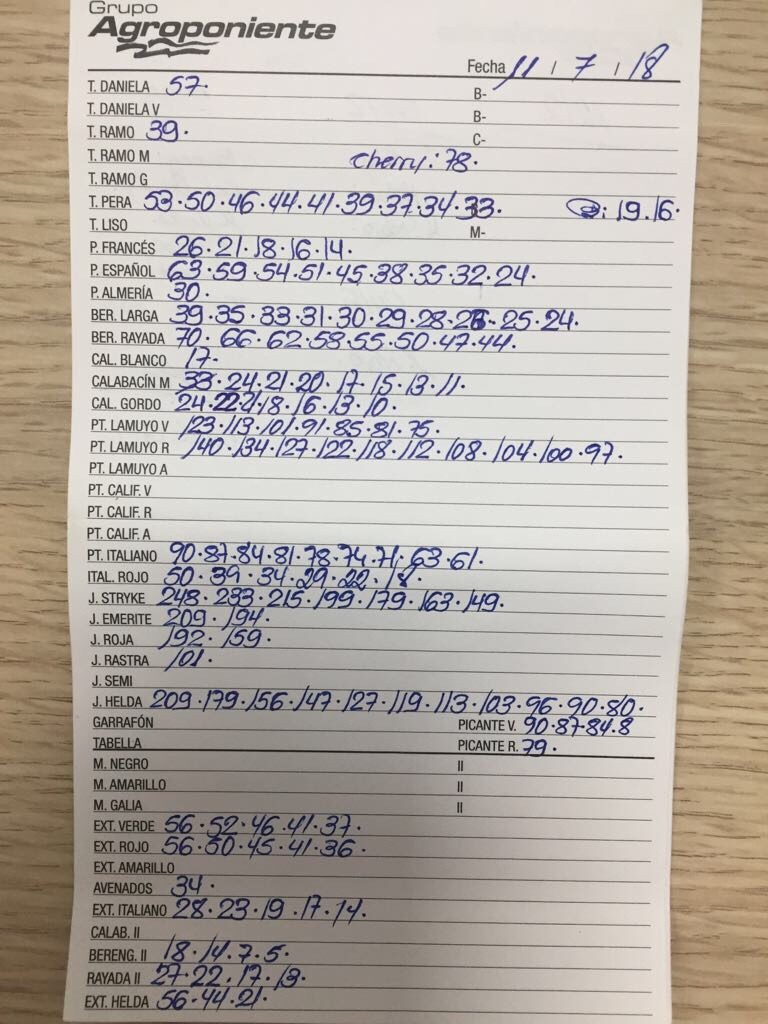 Grupo
Agroponiente
Fecha 11 / 7 / 18
T. DANIELA 57. B-
T. DANIELA V B-
T. RAMO 39. C-
T. RAMO M cherry: 78.
T. RAMO G
T. PERA 53.50.46.44.41.39.37.34.33. : 19.16.
T. LISO M-
P. FRANCÉS 26.21.18.16.14.
P. ESPAÑOL 63.59.54.51.45.38.35.32.24.
P. ALMERÍA 30.
BER. LARGA 39.35.33.31.30.29.28.26.25.24.
BER. RAYADA 70.66.62.58.55.50.47.44.
CAL. BLANCO 17.
CALABACÍN M 33.24.21.20.17.15.13.11.
CAL. GORDO 24.22.21.18.16.13.10.
PT. LAMUYO V 123.113.101.91.85.81.75.
PT. LAMUYO R 140.134.127.122.118.112.108.104.100.97.
PT. LAMUYO A
PT. CALIF. V
PT. CALIF. R
PT. CALIF. A
PT. ITALIANO 90.87.84.81.78.74.71.63.61.
ITAL. ROJO 50.39.34.29.22.18.
J. STRYKE 248.233.215.199.179.163.149.
J. EMERITE 209.194.
J. ROJA 192.159.
J. RASTRA 101.
J. SEMI
J. HELDA 209.179.156.147.127.119.113.103.96.90.80.
GARRAFÓN PICANTE V. 90.87.84.8
TABELLA PICANTE R. 79.
M. NEGRO II
M. AMARILLO II
M. GALIA II
EXT. VERDE 56.52.46.41.37.
EXT. ROJO 56.50.45.41.36.
EXT. AMARILLO
AVENADOS 34.
EXT. ITALIANO 28.23.19.17.14.
CALAB. II
BERENG. II 18.14.7.5.
RAYADA II 27.22.17.13.
EXT. HELDA 56.44.21.